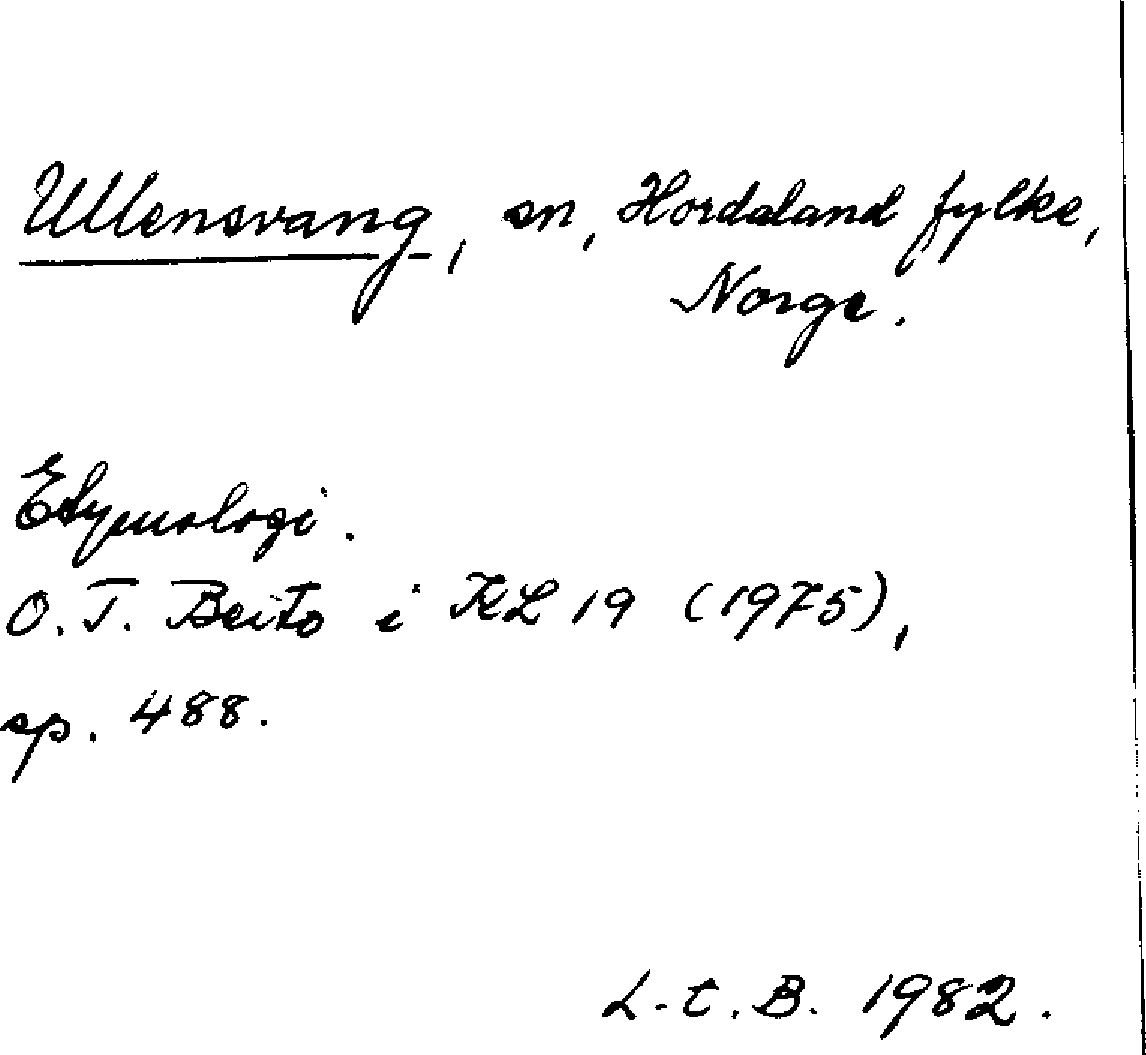 Ullensvang, sn, Hordaland fylke,
Norge.
Etymologi.
O. T. Beito i KL 19 (1975),
sp. 488.
L. t. B. 1982.